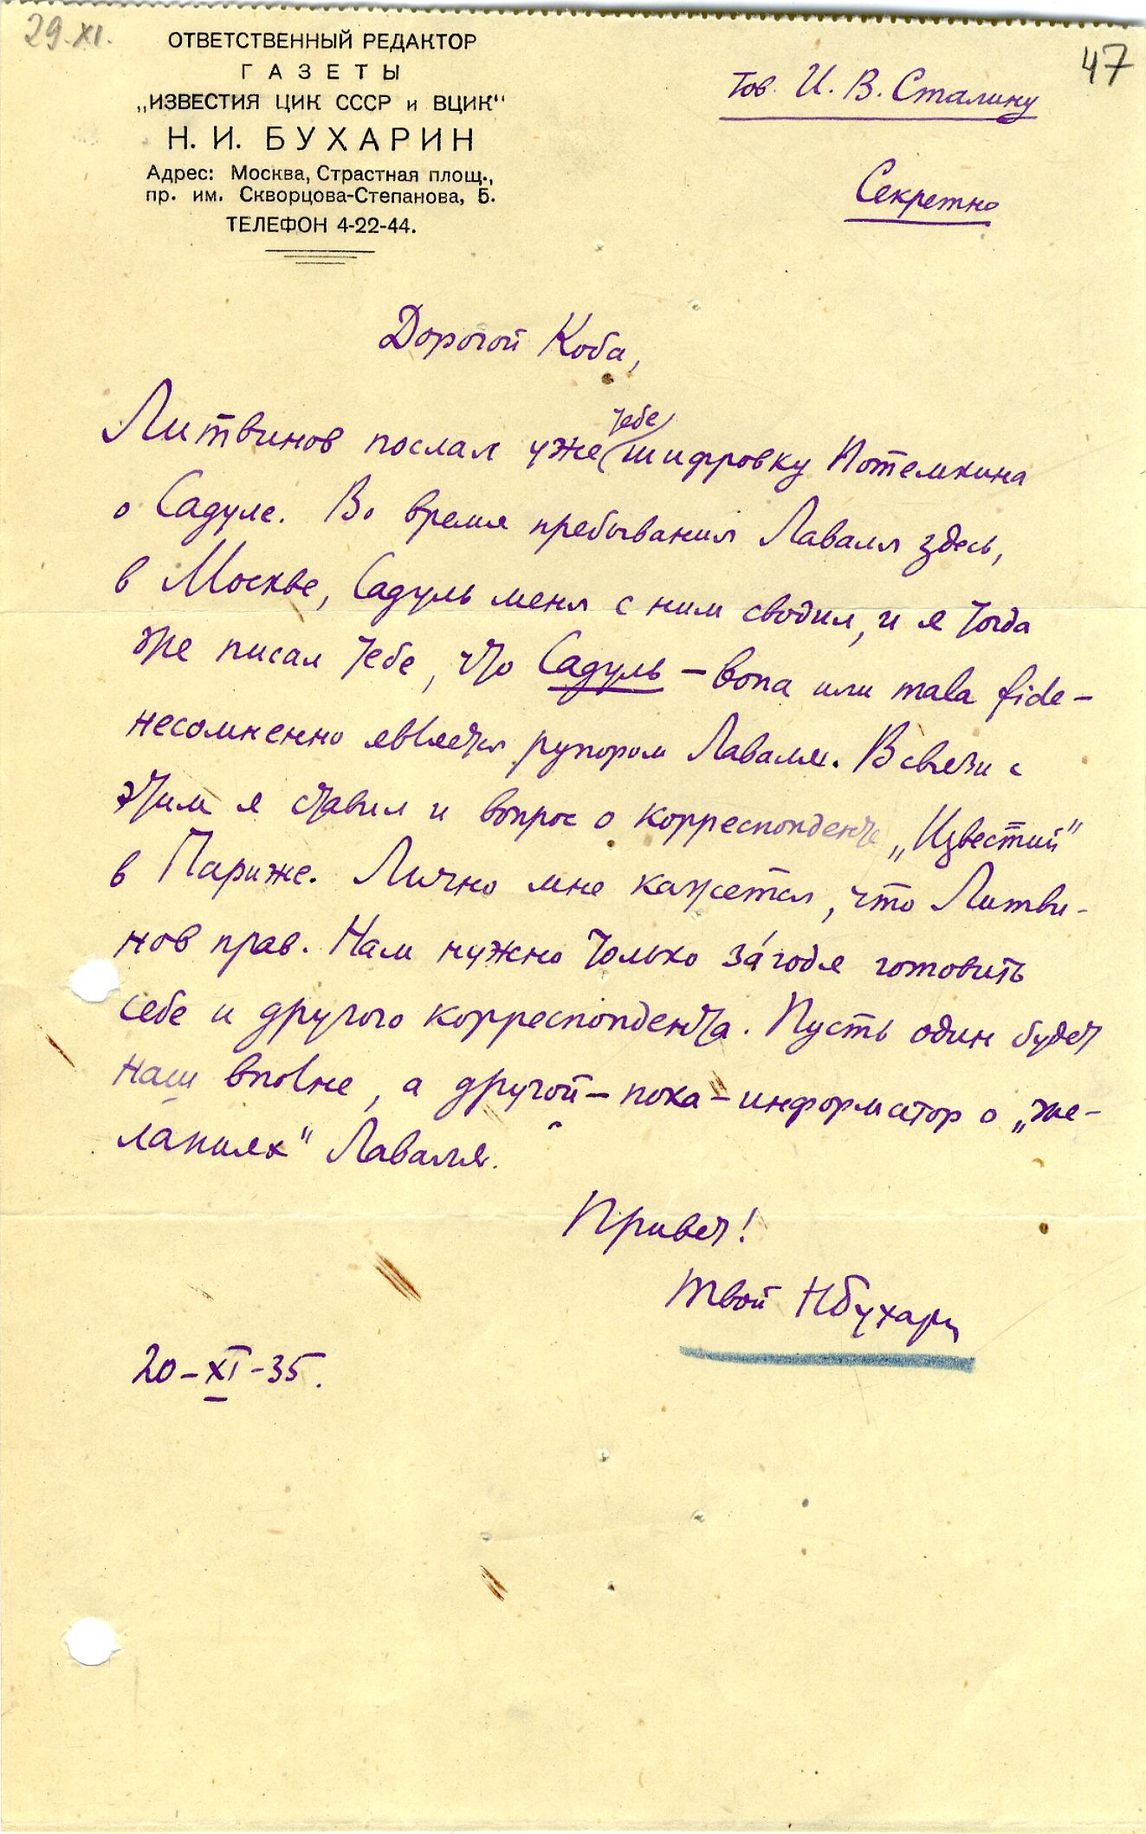 29.XI.
47
ОТВЕТСТВЕННЫЙ РЕДАКТОР
ГАЗЕТЫ
„ИЗВЕСТИЯ ЦИК СССР и ВЦИК“
Н. И. БУХАРИН
Адрес: Москва, Страстная площ.,
пр. им. Скворцова-Степанова, 5.
ТЕЛЕФОН 4-22-44.
Тов. И. В. Сталину
Секретно
Дорогой Коба,
тебе
Литвинов послал уже шифровку Потемкина
о Садуле. Во время пребывания Лаваля здесь,
в Москве, Садуль меня с ним сводил, и я тогда
же писал тебе, что Садуль – bona или mala fide –
несомненно является рупором Лаваля. В связи с
этим я ставил и вопрос о корреспонденте „Известий“
в Париже. Лично мне кажется, что Литви-
нов прав. Нам нужно только за́годя готовить
себе и другого корреспондента. Пусть один будет
наш вполне, а другой – пока – информатор о „же-
ланиях“ Лаваля.
Привет!
Твой НБухарин
20-XI-35.